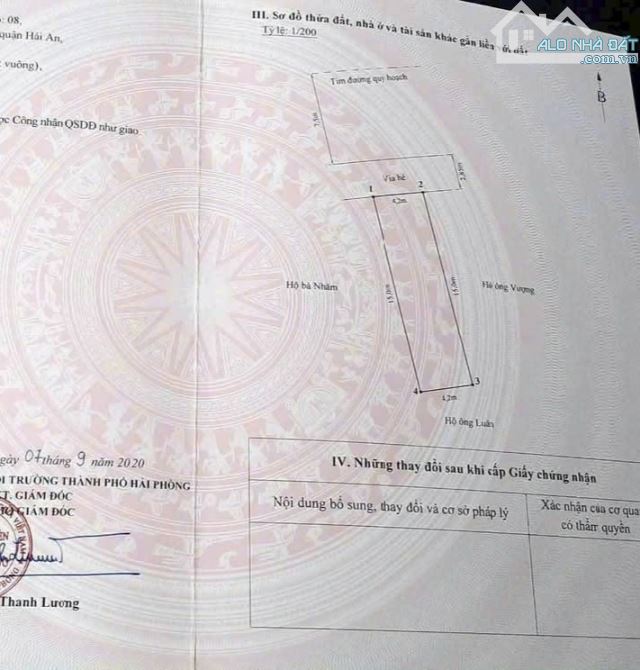 : 08,
quận Hải An,
vuông),
ọc Công nhận QSDĐ như giao
gày 07 tháng 9 năm 2020
I TRƯỜNG THÀNH PHỐ HẢI PHÒNG
KT. GIÁM ĐỐC
GIÁM ĐỐC
Thanh Lương
III. Sơ đồ thửa đất, nhà ở và tài sản khác gắn liền với đất
Tỷ lệ: 1/200
ALO NHÀ ĐẤT
.com.vn
B
Tim đường quy hoạch
7,5m
Vỉa hè
2,85m
1
2
4,2m
Hộ bà Nhâm
15,0m
15,0m
Hộ ông Vượng
4
3
4,2m
Hộ ông Luân
IV. Những thay đổi sau khi cấp Giấy chứng nhận
Nội dung bổ sung, thay đổi và cơ sở pháp lý
Xác nhận của cơ qua
có thẩm quyền